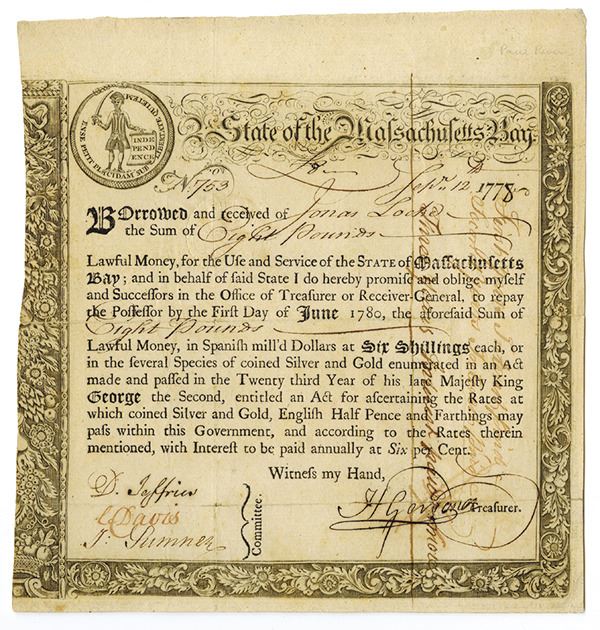 Paul Revere
ENSE PETIT PLACIDAM SUB LIBERTATE QUIETEM
INDE
PEND
ENCE
State of the Massachusetts Bay.
No. 753
Sepr. 12th 1778
BOrrowed and received of Jonas Locke
the Sum of Eight Pounds
Lawful Money, for the Use and Service of the STATE of Massachusetts
Bay; and in behalf of said State I do hereby promise and oblige myself
and Successors in the Office of Treasurer or Receiver-General, to repay
the Possessor by the First Day of June 1780, the aforesaid Sum of
Eight Pounds
Lawful Money, in Spanish mill'd Dollars at Six Shillings each, or
in the several Species of coined Silver and Gold enumerated in an Act
made and passed in the Twenty third Year of his late Majesty King
George the Second, entitled an Act for ascertaining the Rates at
which coined Silver and Gold, English Half Pence and Farthings may
pass within this Government, and according to the Rates therein
mentioned, with Interest to be paid annually at Six per Cent.
Witness my Hand,
D. Jeffries
C Davis
Sumner
Committee.
H Gardner Treasurer.